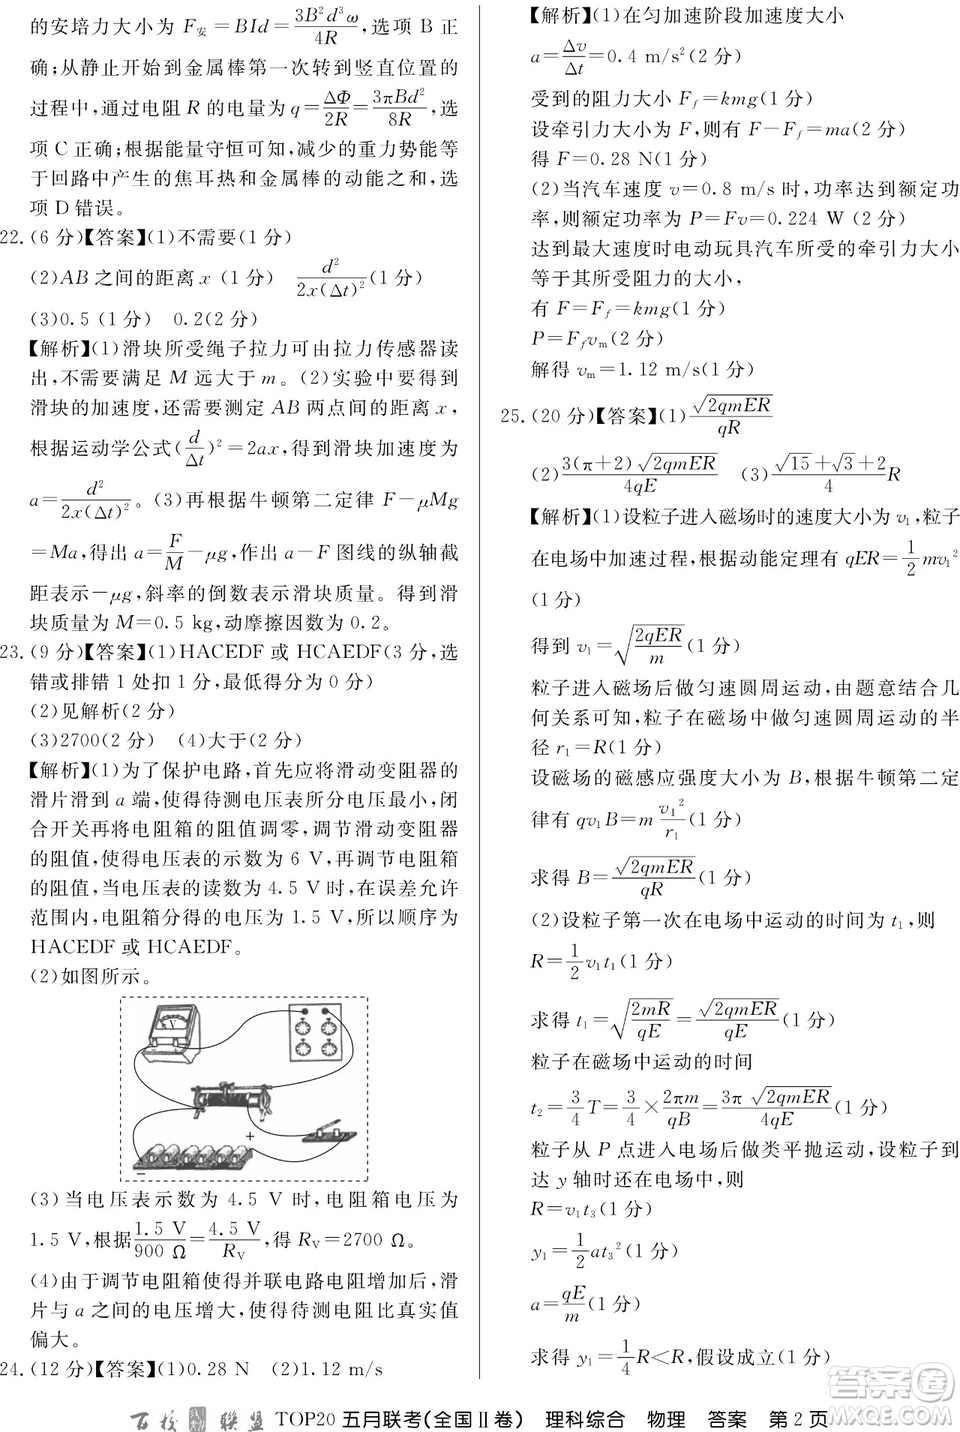 的安培力大小为 F安=BId=3B²d³ω/4R,选项 B 正
确;从静止开始到金属棒第一次转到竖直位置的
过程中,通过电阻 R 的电量为 q=ΔΦ/2R=3πBd²/8R,选
项 C 正确;根据能量守恒可知,减少的重力势能等
于回路中产生的焦耳热和金属棒的动能之和,选
项 D 错误。
22.(6 分)【答案】(1)不需要(1 分)
(2)AB 之间的距离 x (1 分) d²/2x(Δt)²(1 分)
(3)0.5 (1 分) 0.2(2 分)
【解析】(1)滑块所受绳子拉力可由拉力传感器读
出,不需要满足 M 远大于 m。(2)实验中要得到
滑块的加速度,还需要测定 AB 两点间的距离 x,
根据运动学公式(d/Δt)²=2ax,得到滑块加速度为
a=d²/2x(Δt)²。(3)再根据牛顿第二定律 F-μMg
=Ma,得出 a=F/M-μg,作出 a-F 图线的纵轴截
距表示-μg,斜率的倒数表示滑块质量。得到滑
块质量为 M=0.5 kg,动摩擦因数为 0.2。
23.(9 分)【答案】(1)HACEDF 或 HCAEDF(3 分,选
错或排错 1 处扣 1 分,最低得分为 0 分)
(2)见解析(2 分)
(3)2700(2 分) (4)大于(2 分)
【解析】(1)为了保护电路,首先应将滑动变阻器的
滑片滑到 a 端,使得待测电压表所分电压最小,闭
合开关再将电阻箱的阻值调零,调节滑动变阻器
的阻值,使得电压表的示数为 6 V,再调节电阻箱
的阻值,当电压表的读数为 4.5 V 时,在误差允许
范围内,电阻箱分得的电压为 1.5 V,所以顺序为
HACEDF 或 HCAEDF。
(2)如图所示。
V
+
-
(3)当电压表示数为 4.5 V 时,电阻箱电压为
1.5 V,根据1.5 V/900 Ω=4.5 V/RV,得 RV=2700 Ω。
(4)由于调节电阻箱使得并联电路电阻增加后,滑
片与 a 之间的电压增大,使得待测电阻比真实值
偏大。
24.(12 分)【答案】(1)0.28 N (2)1.12 m/s
【解析】(1)在匀加速阶段加速度大小
a=Δv/Δt=0.4 m/s²(2 分)
受到的阻力大小 Ff=kmg(1 分)
设牵引力大小为 F,则有 F-Ff=ma(2 分)
得 F=0.28 N(1 分)
(2)当汽车速度 v=0.8 m/s 时,功率达到额定功
率,则额定功率为 P=Fv=0.224 W (2 分)
达到最大速度时电动玩具汽车所受的牵引力大小
等于其所受阻力的大小,
有 F=Ff=kmg(1 分)
P=Ffvm(2 分)
解得 vm=1.12 m/s(1 分)
25.(20 分)【答案】(1)√(2qmER)/qR
(2)3(π+2)√(2qmER)/4qE (3)(√15+√3+2)/4 R
【解析】(1)设粒子进入磁场时的速度大小为 v₁,粒子
在电场中加速过程,根据动能定理有 qER=1/2 mv₁²
(1 分)
得到 v₁=√(2qER/m)(1 分)
粒子进入磁场后做匀速圆周运动,由题意结合几
何关系可知,粒子在磁场中做匀速圆周运动的半
径 r₁=R(1 分)
设磁场的磁感应强度大小为 B,根据牛顿第二定
律有 qv₁B=m v₁²/r₁(1 分)
求得 B=√(2qmER)/qR(1 分)
(2)设粒子第一次在电场中运动的时间为 t₁,则
R=1/2 v₁t₁(1 分)
求得 t₁=√(2mR/qE)=√(2qmER)/qE(1 分)
粒子在磁场中运动的时间
t₂=3/4 T=3/4×2πm/qB=3π√(2qmER)/4qE(1 分)
粒子从 P 点进入电场后做类平抛运动,设粒子到
达 y 轴时还在电场中,则
R=v₁t₃(1 分)
y₁=1/2 at₃²(1 分)
a=qE/m(1 分)
求得 y₁=1/4 R<R,假设成立(1 分)
百校 联盟 TOP20 五月联考(全国Ⅱ卷) 理科综合 物理 答案 第 2 页